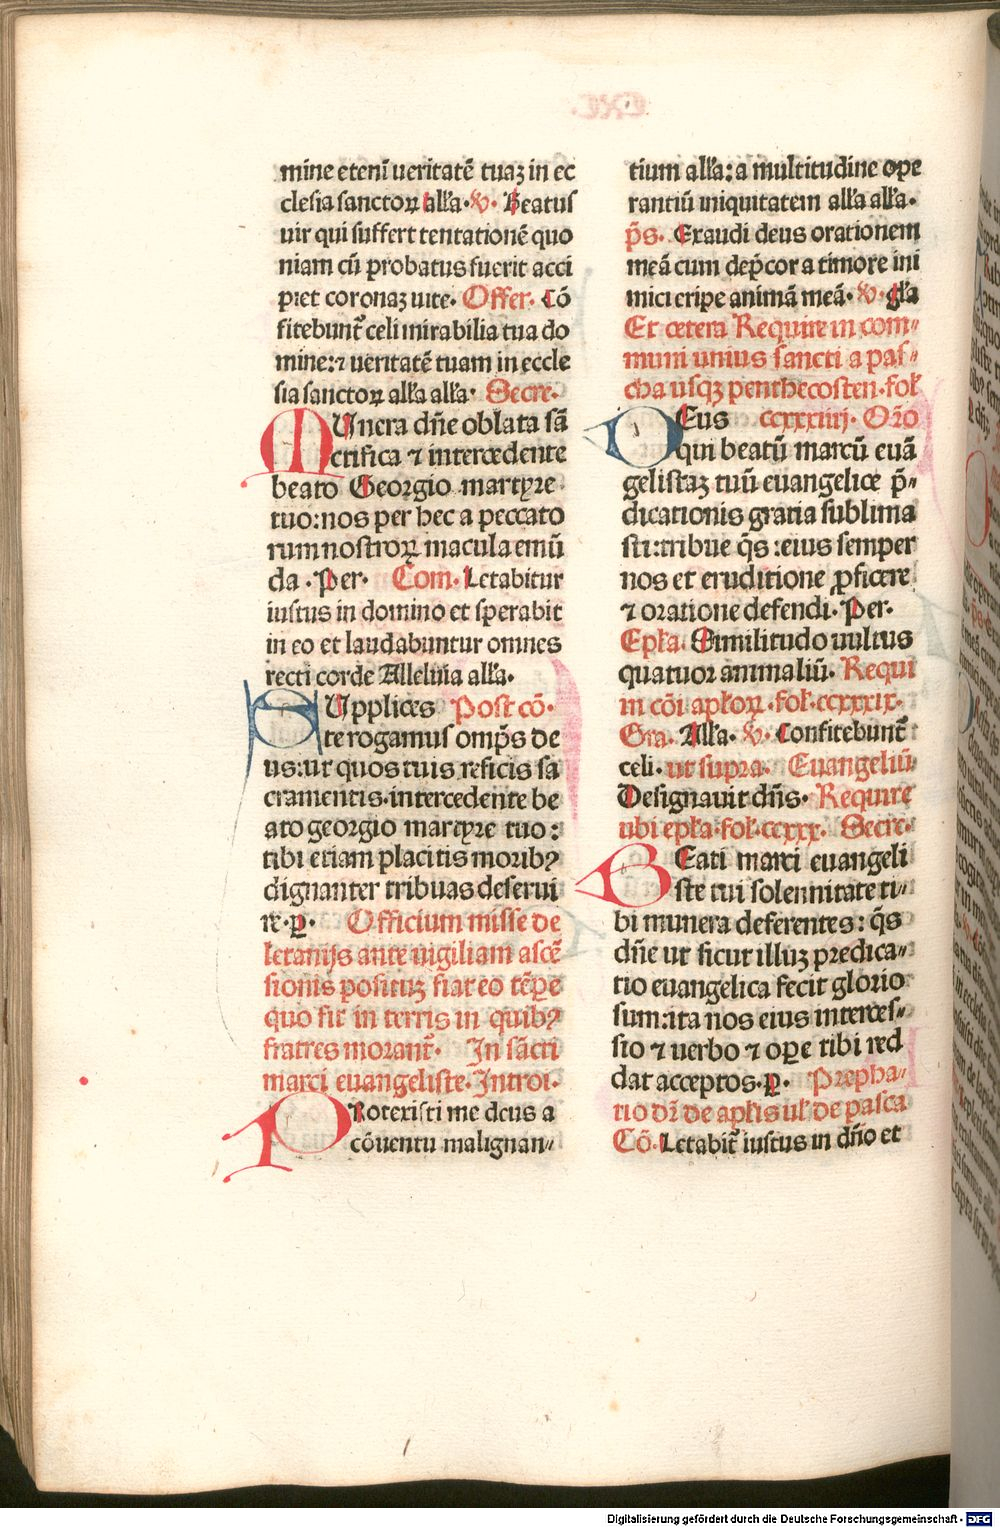 mine eteni̅ ueritate̅ tuaꝫ in ec
clesia sanctoꝝ all'a· ℣· Beatus
uir qui suffert tentatione̅ quo
niam cu̅ probatus fuerit acci
piet coronaꝫ uite· Offer. Co̅
fitebunt᷑ celi mirabilia tua do
mine:⁊ ueritate̅ tuam in eccle
sia sanctoꝝ all'a all'a· Secre·
MUnera dn̅e oblata sa̅
ctifica ⁊ intercedente
beato Georgio martyre
tuo:nos per hec a peccato
rum nostroꝝ macula emu̅
da · Per· Com. Letabitur
iustus in domino et sperabit
in eo et laudabuntur omnes
recti corde Alleluia all'a·
SUpplices Post co̅·
te rogamus omp̅s de
us:ut quos tuis reficis sa
cramentis·intercedente be
ato georgio martyre tuo:
tibi etiam placitis moribꝰ
dignanter tribuas deserui
re·ꝑ· Officium misse de
letanijs ante uigiliam asce̅
sionis posituꝫ fiat eo te̅pe
quo fit in terris in quibꝰ
fratres morant᷑· In sa̅cti
marci euangeliste· Introi.
PRotexisti me deus a
co̅uentu malignan⸗
tium all'a: a multitudine ope
rantiu̅ iniquitatem all'a all'a·
p̅s. Exaudi deus orationem
mea̅ cum dep̅cor a timore ini
mici eripe anima̅ mea̅· ℣· gl'a
Et cetera Require in com⸗
muni unius sancti a pas⸗
cha usqꝫ penthecosten·fol'
DEus ccxxiiij· Or̅o
qui beatu̅ marcu̅ eua̅
gelistaꝫ tuu̅ euangelice p̅⸗
dicationis gratia sublima
sti:tribue q̅s :eius semper
nos et eruditione ꝓficere
⁊ oratione defendi· Per.
Epl'a. Similitudo uultus
quatuor animaliu̅· Requi
in co̅i apl'oꝝ ·fol'·ccxxix·
Gra. All'a· ℣· Confitebunt᷑
celi· ut supra· Euangeliu̅
Designauit dn̅s· Require
ubi epl'a·fol'·ccxxx· Secre·
BEati marci euangeli
ste tui solennitate ti⸗
bi munera deferentes: q̅s
dn̅e ut sicut illuꝫ predica⸗
tio euangelica fecit glorio
sum:ita nos eius interces⸗
sio ⁊ uerbo ⁊ oꝑe tibi red
dat acceptos·ꝑ· Prepha⸗
tio dr̅ de apl'is ul' de pasca
Co̅· Letabit᷑ iustus in dn̅o et
Digitalisierung gefördert durch die Deutsche Forschungsgemeinschaft - DFG